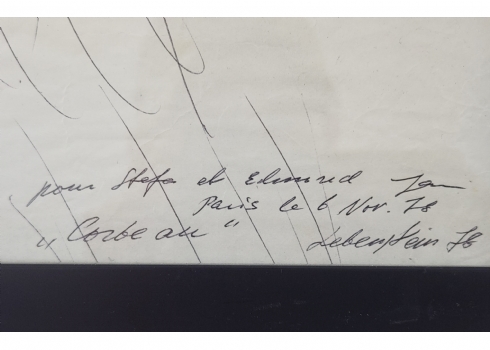 pour Stefa et Edmund Jan
Paris le 6 Nov. 78
„Corbeau" Lebenstein 78